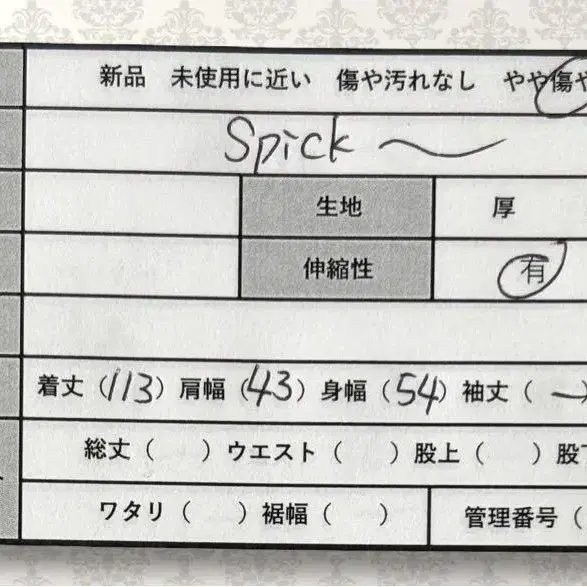 新品 未使用に近い 傷や汚れなし やや傷や
Spick 〜
生地 厚
伸縮性 有
着丈（113）肩幅（43）身幅（54）袖丈（ー）
総丈（ ）ウエスト（ ）股上（ ）股下
ワタリ（ ）裾幅（ ） 管理番号（